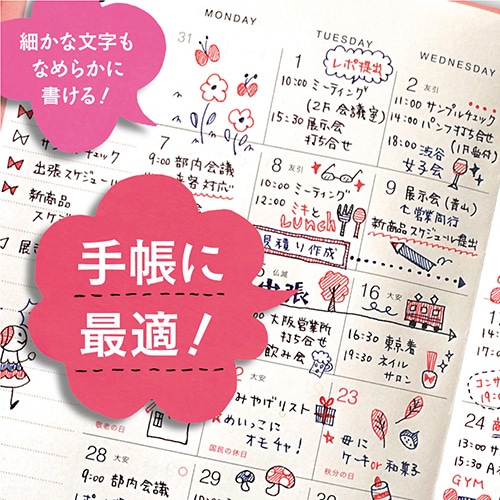 細かな文字も
なめらかに
書ける!
手帳に
最適!
MONDAY
TUESDAY
WEDNESDAY
31
1
レポ提出
10:00 ミーティング
(2F 会議室)
15:30 展示会
打合せ
2 友引
11:00 サンプルチェック
14:00 パンフ打ち合せ
18:00 渋谷
女子会
7
9:00 部内会議
来客対応
8 友引
10:00 ミーティング
12:00 ミキと
Lunch
見積り作成
9
展示会(青山)
営業同行
新商品スケジュール提出
チェック
出張スケジュール
新商品
スケジ
仏滅
出張
大阪営業所
打ち合せ
飲み会
16 大安
16:30 東京着
19:30 ネイル
サロン
大安
みやげリスト
めいっこに
オモチャ!
敬老の日
国民の休日
23
母に
ケーキor和菓子
秋分の日
24
13:00
15:30
GYM
28 大安
9:00 部内会議
29
30